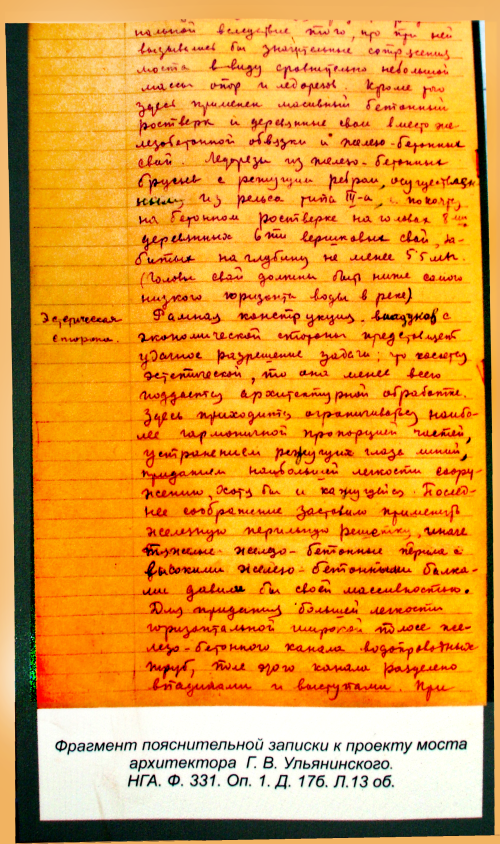 нальной вследствие того, что при ней
вызывались бы значительные сотрясения
моста в виду сравнительно небольшой
массы опор и ледорезов. Кроме того
здесь применен массивный бетонный
ростверк и деревянные сваи вместо же-
лезобетонной обвязки и железо-бетонных
свай. Ледорезы из железо-бетонных
брусьев с режущим ребром, осуществлен-
ным из рельса типа III-а, покоятся
на бетонном ростверке на головах 8 ми
деревянных 6 ти вершковых свай, за-
битых на глубину не менее
(Головы свай должны быть ниже самого
низкого горизонта воды в реке)
Эстетическая
сторона.
Рамная конструкция виадуков с
экономической стороны представляет
удачное разрешение задачи; что касается
эстетической, то она менее всего
поддается архитектурной обработке.
Здесь приходится ограничиваться наибо-
лее гармоничной пропорцией частей,
устранением режущих глаза линий,
приданием наибольшей легкости соору-
жению, хотя бы и кажущейся. Послед-
нее соображение заставило применить
железную перильную решетку, иначе
тяжелые железо-бетонные перила с
высокими железо-бетонными балка-
ми давили бы своей массивностью.
Для придания большей легкости
горизонтальной широкой полосе же-
лезо-бетонного канала водопроводных
труб, поле этого канала разделено
впадинами и выступами. При
Фрагмент пояснительной записки к проекту моста
архитектора Г. В. Ульянинского.
НГА. Ф. 331. Оп. 1. Д. 17б. Л.13 об.